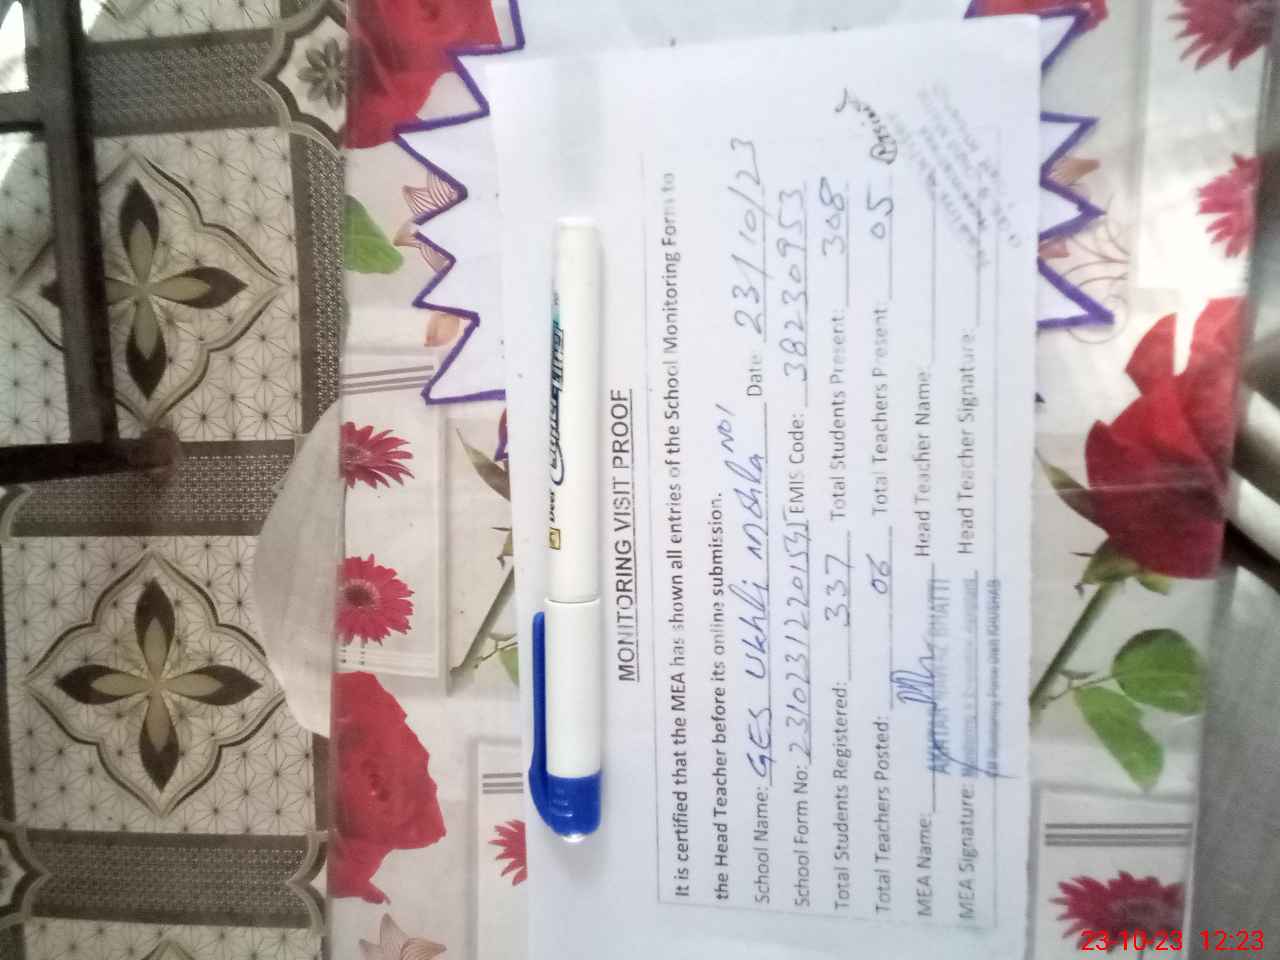 MONITORING VISIT PROOF
It is certified that the MEA has shown all entries of the School Monitoring Form to
the Head Teacher before its online submission.
School Name: GES Ukhli Mohla No1 Date: 23/10/23
School Form No: EMIS Code: 38230953
Total Students Registered: 337 Total Students Present: 308
Total Teachers Posted: 06 Total Teachers Present: 05
MEA Name: BHATTI Head Teacher Name:
MEA Signature: Head Teacher Signature:
KHUSHAB
Deer
23-10-23 12:23